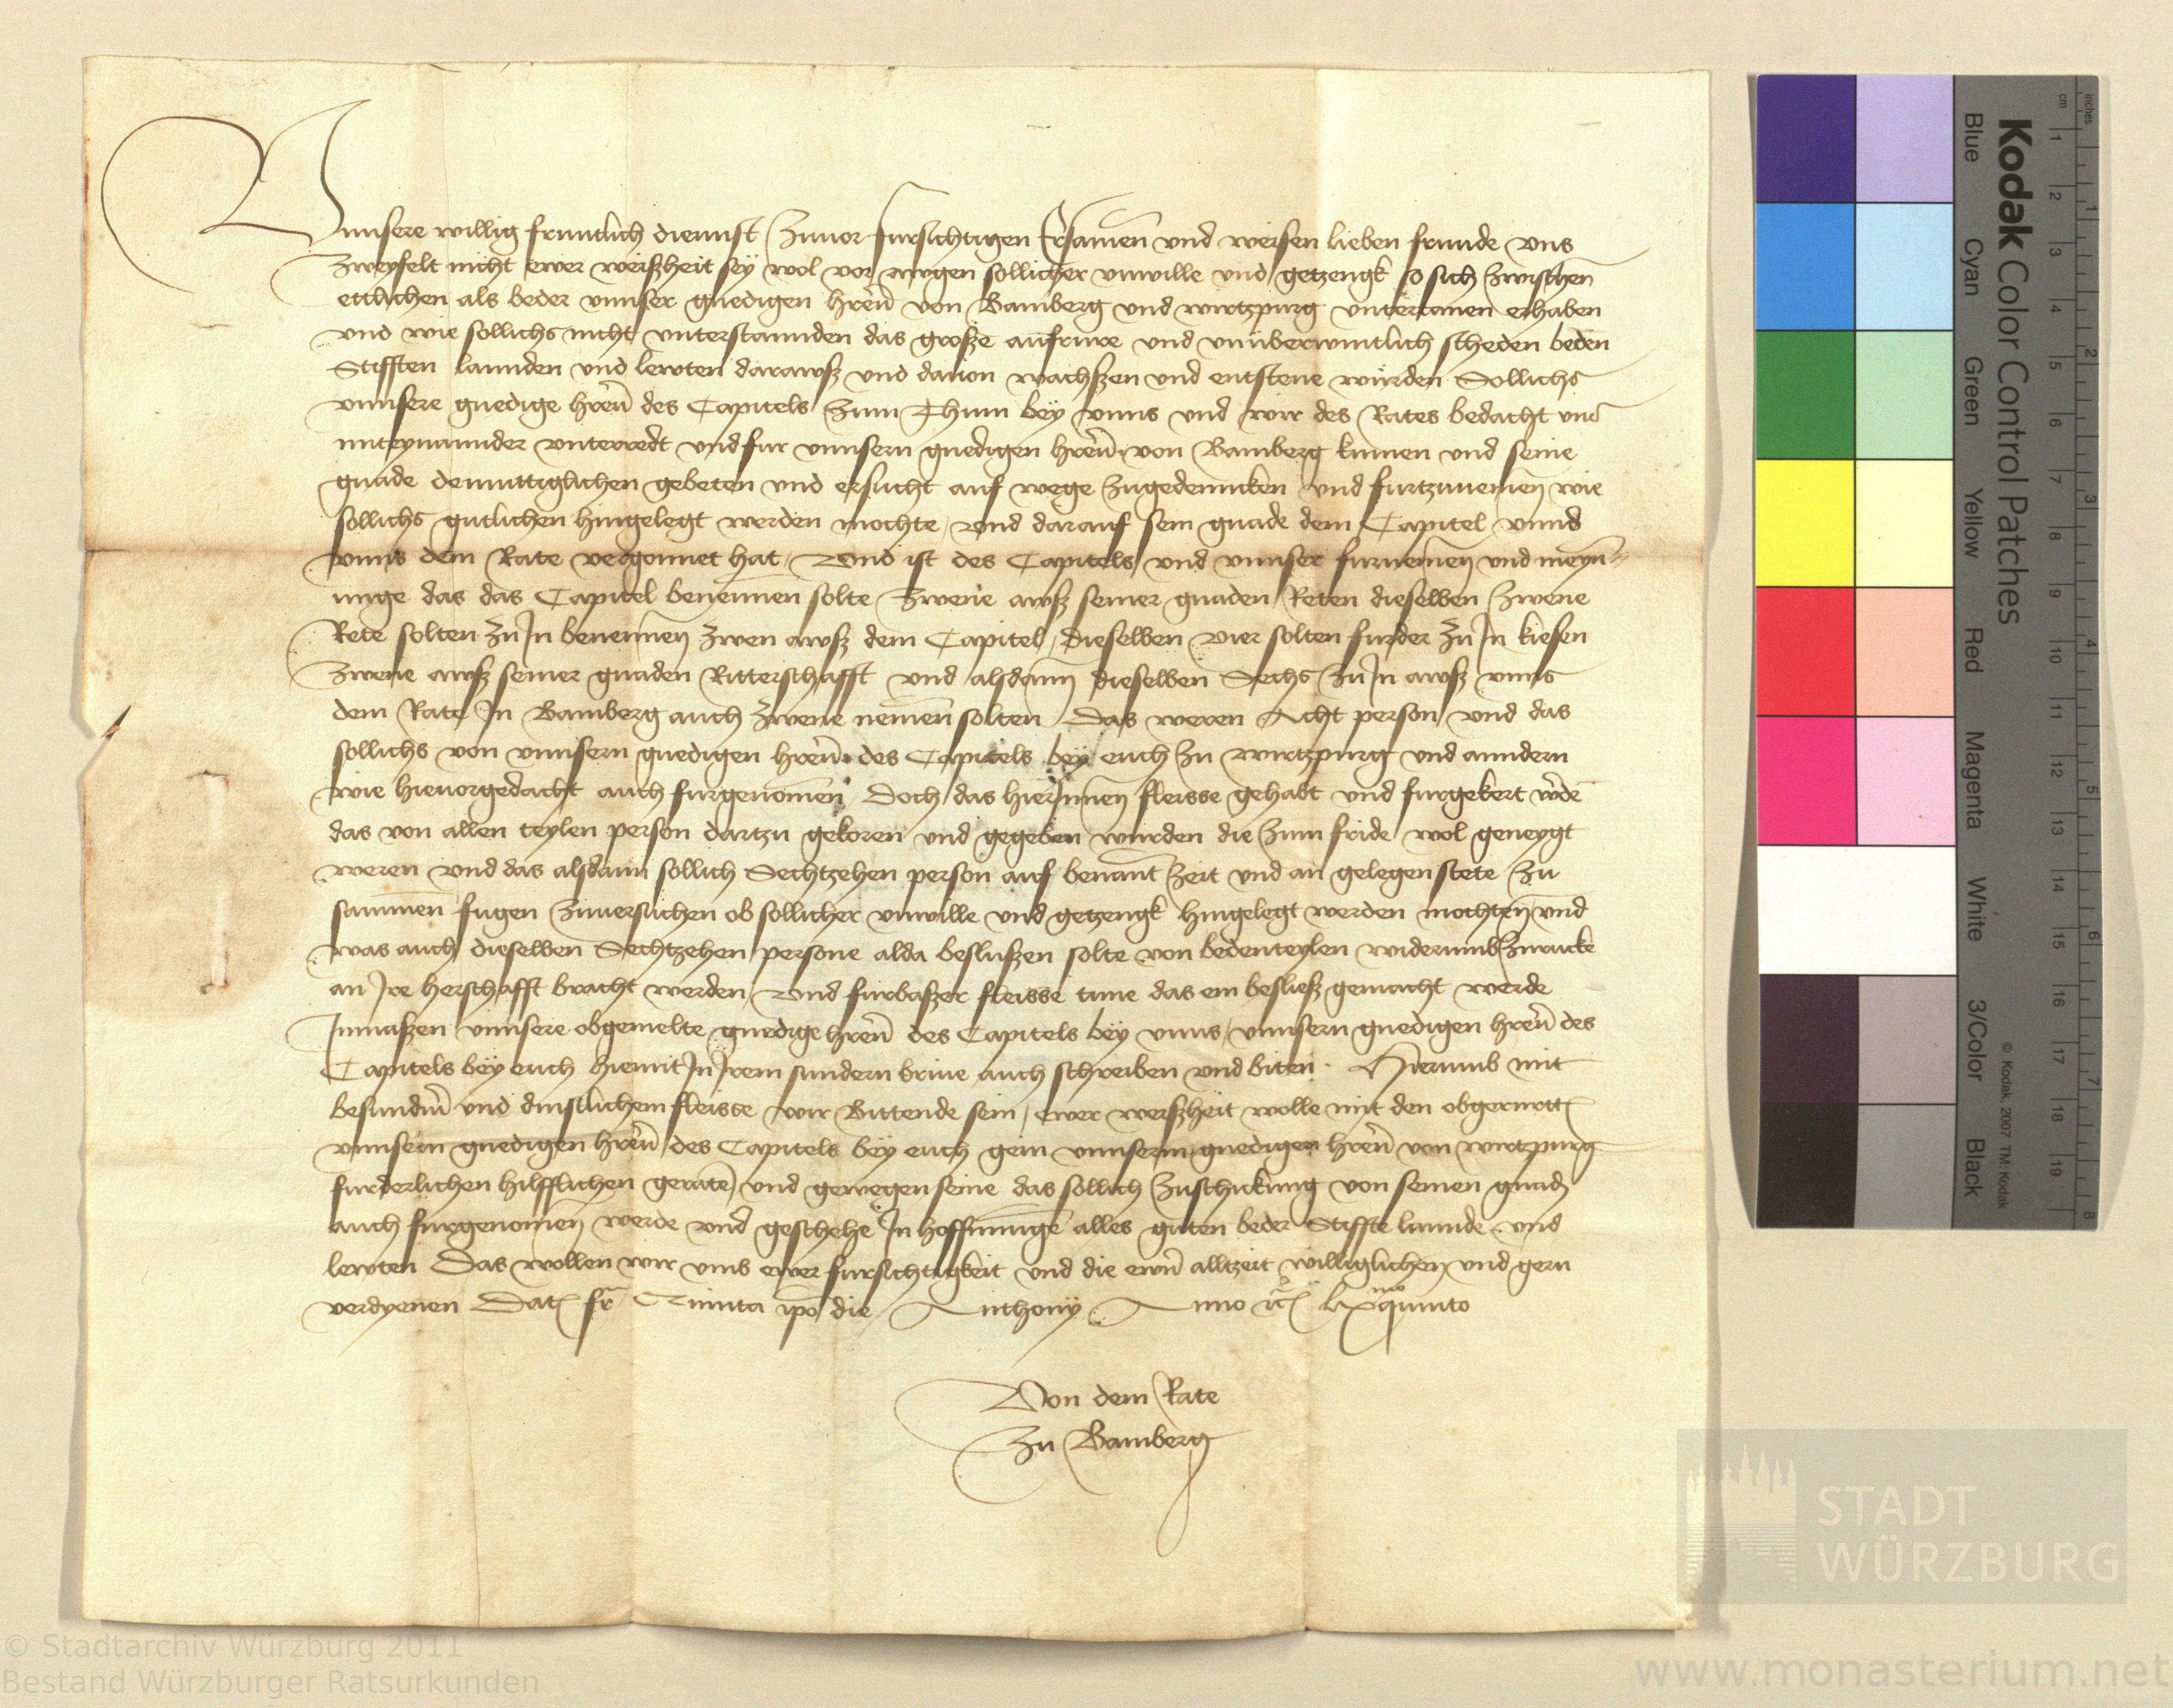 Unnsere willig fruntlich diennst zuuor fursichtigen Ersamen und weisen lieben frunde uns
zweyfelt nicht ewer weißheit sey wol vor awgen sollicher unwille und getzengk so sich zwischen
ettlichen als beder unnser gnedigen hren von Bamberg und wirtzpurg untertanen erhaben
und wie sollichs nicht unterstannden das große aufrure und unüberwintlich scheden beden
Stifften lannden und lewten darawß und dauon wachßen und entstene würden Sollichs
unnsere gnedige hren des Capitels zum Thum bey unns und wir des Rates bedacht und
miteynannder unterredt und fur unnsern gnedigen hren von Bamberg kumen und seine
gnade demuttiglichen gebeten und ersucht auf wege zugedenncken und furtzunemen wie
sollichs gutlichen hingelegt werden mochte und darauf sein gnade dem Capitel unnd
unns dem Rate vergonnet hat Und ist des Capitels und unnser furnemen und meyn=
unge das das Capitel benennen solte zwene awß seiner gnaden Reten dieselben zwene
Rete solten zu In benennen zwen awß dem Capitel dieselben vier solten furder zu In kiesen
zwene awß seiner gnaden Ritterschafft und alsdann dieselben Sechs zu In awß unns
dem Rate In Bamberg auch zwene nemen solten Das weren Acht person und das
sollichs von unnsern gnedigen hren des Capitels bey euch zu wirtzpurg und anndern
wie hieuorgedacht auch furgenomen Doch das hierInnen fleisse gehabt und furgekert wde
das von allen teylen person dartzu gekoren und gegeben wurden die zum fride wol geneygt
weren und das alsdann sollich Sechtzehen person auf benant zeit und an gelegen stete zu
sammen fugen zuuersuchen ob sollicher unwille und getzengk hingelegt werden mochten und
was auch dieselben Sechtzehen persone alda besließen solte von bedenteylen widerumb zurucke
an Ire herschafft bracht werden Und furbaßer fleisse tune das ein besließ gemacht werde
Inmaßen unnsere obgemelte gnedige hren des Capitels bey unns unnsern gnedigen hren des
Capitels bey euch hiemit In Irem sundern briue auch schreiben und biten Hierumb mit
besundrn und dinstlichem fleisse wir Bittende sein ewer weißheit wolle mit den obgerurtt
unnsern gnedigen hren des Capitels bey euch gein unnserm gnedigen hren von wirtzpurg
furderlichen hilfflichen geraten und gewegen seine das sollich zuschickung von seinen gnad
auch furgenomen werde und geschehe In hoffnunge alles guten beder Stiffte lannde und
lewten Das wollen wir umb ewer fursichtigkeit und die ewrn alltzeit williglichen und gern
verdyenen Dat fr Quinta ipo die Anthony Anno rc lxquinto
Von dem Rate
zu Bamberg
Kodak Color Control Patches
Blue Cyan Green Yellow Red Magenta White 3/Color Black
© Kodak, 2007 TM: Kodak
cm 1 2 3 4 5 6 7 8 9 10 11 12 13 14 15 16 17 18 19
inches 1 2 3 4 5 6 7 8
STADT
WÜRZBURG
© Stadtarchiv Würzburg 2011
Bestand Würzburger Ratsurkunden
www.monasterium.net